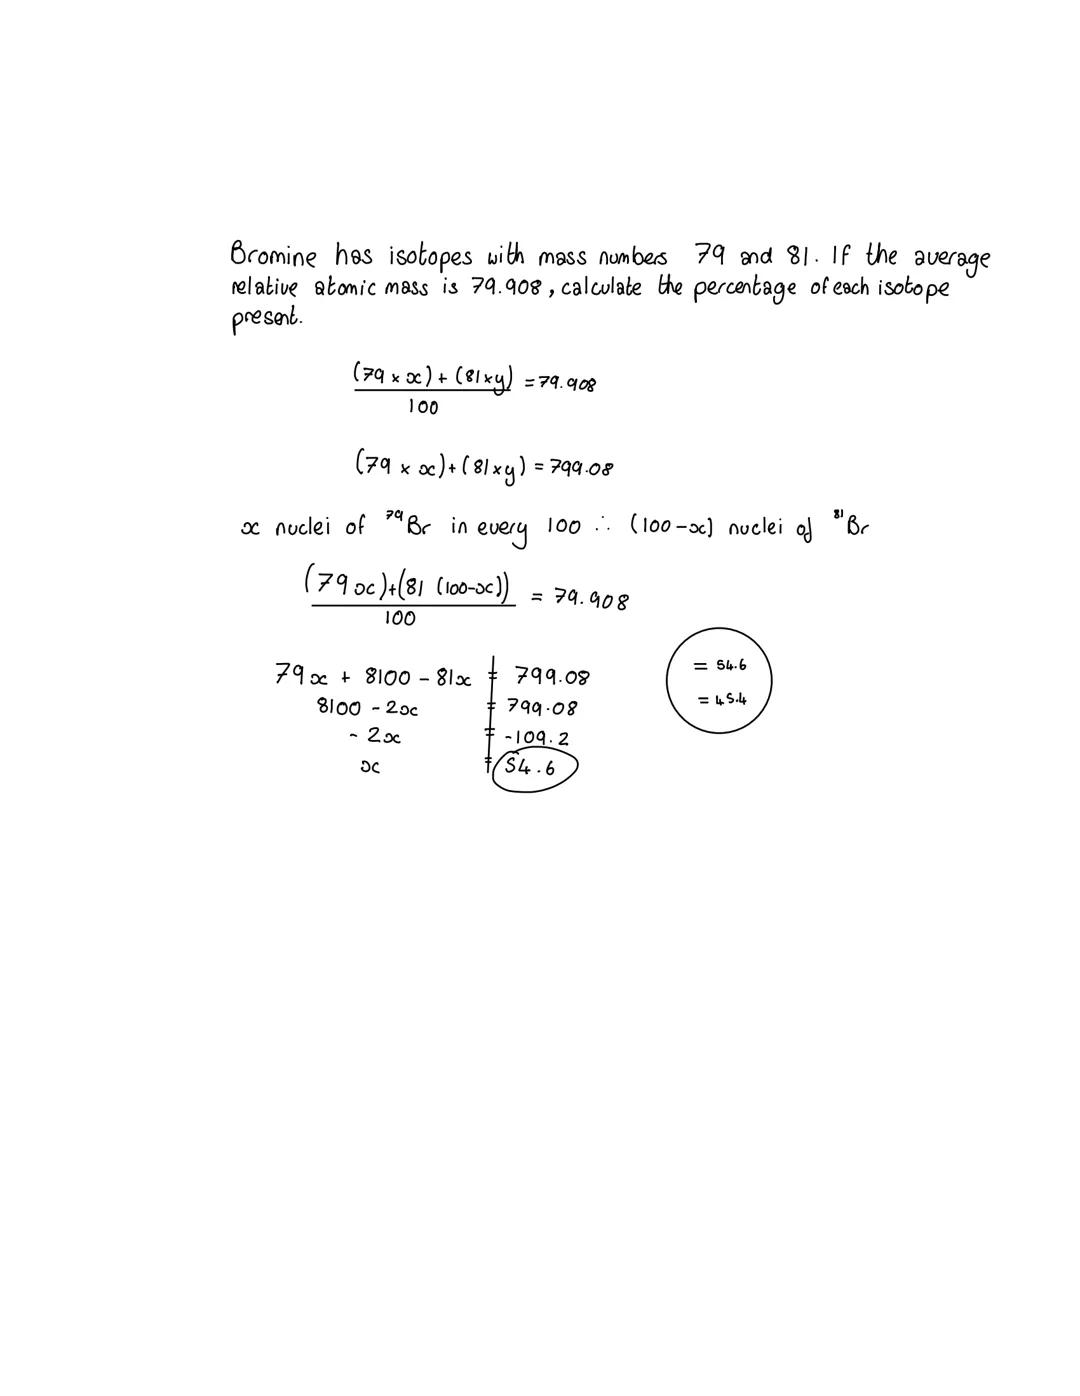 Bromine has isotopes with mass numbers 79 and 81. If the average
relative atomic mass is 79.908, calculate the percentage of each isotope
present.
(79 × x) + (81×y) = 79.908
100
(79 × x) + (81×y) = 799.08
x nuclei of ⁷⁹Br in every 100 ∴ (100-x) nuclei of ⁸¹Br
(79x)+(81 (100-x)) = 79.908
100
79x + 8100 - 81x = 799.08
8100 - 2x = 799.08
- 2x = -109.2
x = 54.6
= 54.6
= 45.4